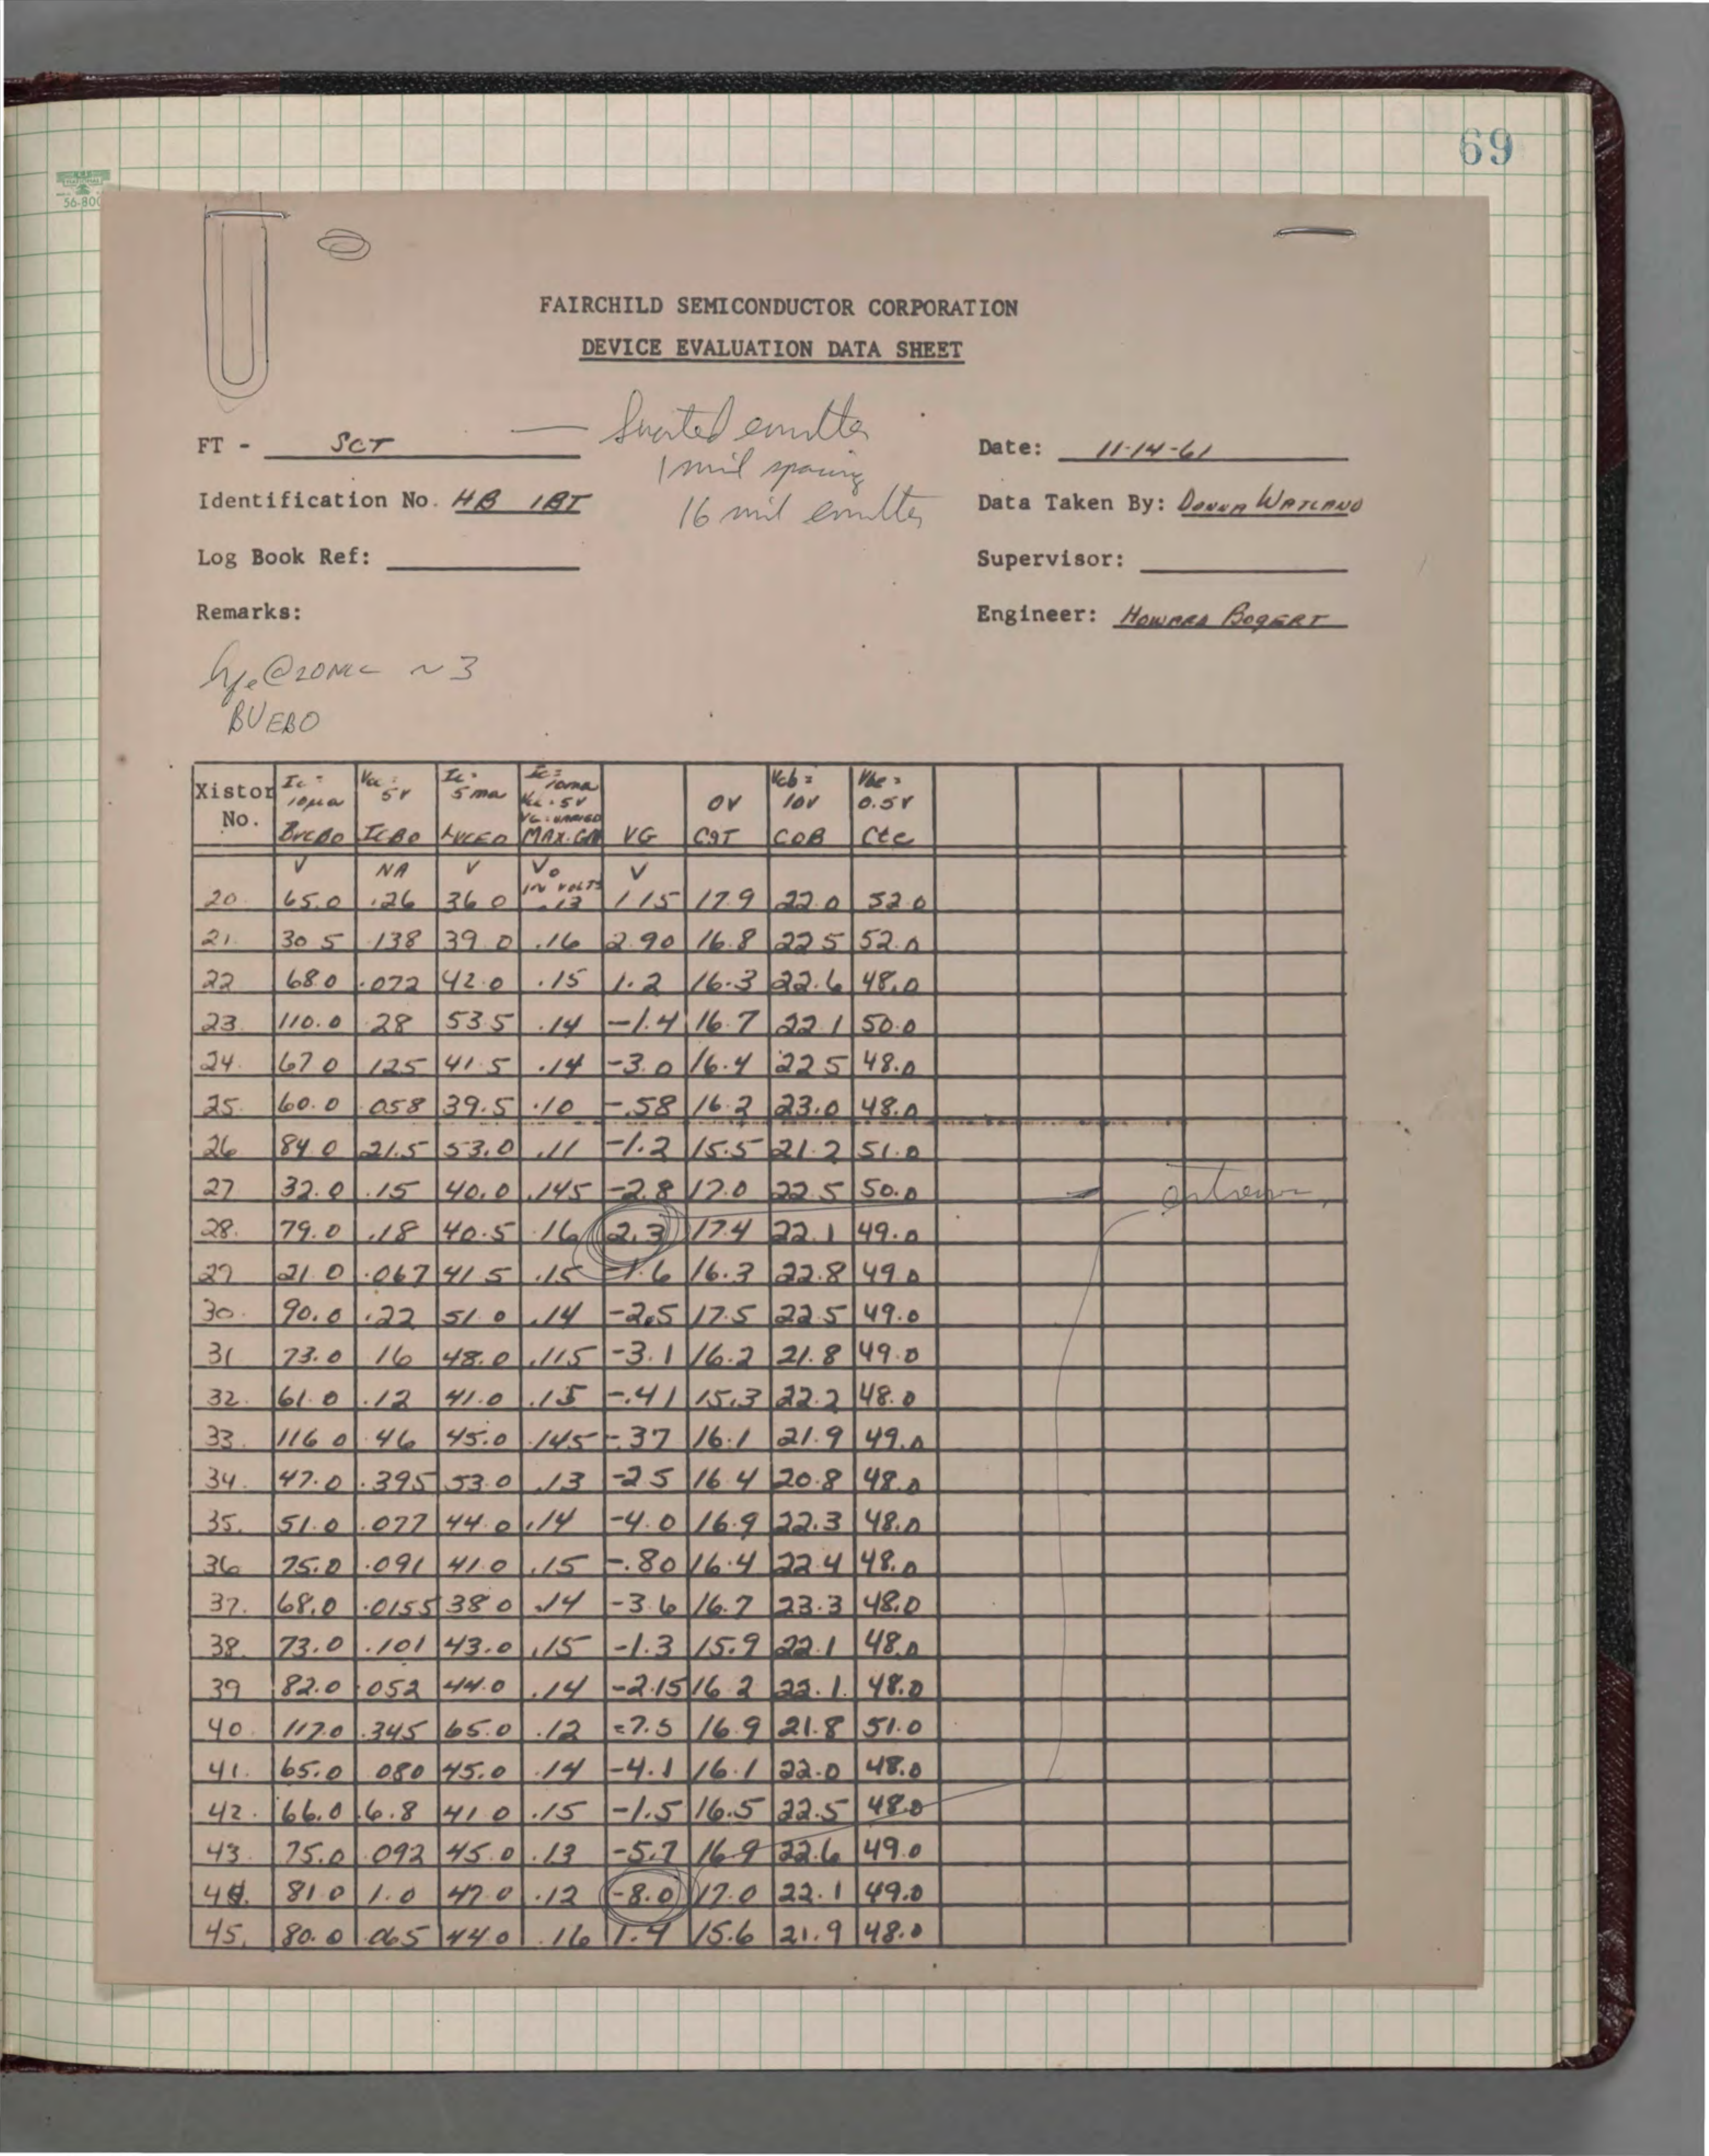 69
56-800
FAIRCHILD SEMICONDUCTOR CORPORATION
DEVICE EVALUATION DATA SHEET
FT - SCT
— emitter
1 mil spacing
16 mil emitter
Date: 11-14-61
Identification No. HB 1BT
Data Taken By: DONNA WATLAND
Log Book Ref:
Supervisor:
Remarks:
Engineer: HOWARD BOGERT
hfe @ 20MC ~ 3
BVEBO
Xistor No. Ic = 10μa BVCBO 5V ICBO Ic = 5 ma LVCEO Ic = 10ma 5V VG = VARIED MAX. GM VG OV CGT Vcb = 10V COB Vbe = 0.5V Cte
V NA V Vo IN VOLTS V
20. 65.0 .26 36.0 .13 1.15 17.9 22.0 52.0
21. 30.5 .138 39.0 .16 2.90 16.8 22.5 52.0
22 68.0 .072 42.0 .15 1.2 16.3 22.6 48.0
23. 110.0 .28 53.5 .14 -1.4 16.7 22.1 50.0
24. 67.0 .125 41.5 .14 -3.0 16.4 22.5 48.0
25. 60.0 .058 39.5 .10 -.58 16.2 23.0 48.0
26 84.0 21.5 53.0 .11 -1.2 15.5 21.2 51.0
27 32.0 .15 40.0 .145 -2.8 17.0 22.5 50.0
28. 79.0 .18 40.5 .16 2.3 17.4 22.1 49.0
29 21.0 .067 41.5 .15 -1.6 16.3 22.8 49.0
30. 90.0 .22 51.0 .14 -2.5 17.5 22.5 49.0
31 73.0 16 48.0 .115 -3.1 16.2 21.8 49.0
32. 61.0 .12 41.0 .15 -.41 15.3 22.2 48.0
33. 116.0 .46 45.0 .145 -.37 16.1 21.9 49.0
34. 47.0 .395 53.0 .13 -2.5 16.4 20.8 48.0
35. 51.0 .077 44.0 .14 -4.0 16.9 22.3 48.0
36 75.0 .091 41.0 .15 -.80 16.4 22.4 48.0
37. 68.0 .0155 38.0 .14 -3.6 16.7 23.3 48.0
38. 73.0 .101 43.0 .15 -1.3 15.9 22.1 48.0
39 82.0 .052 44.0 .14 -2.15 16.2 22.1 48.0
40. 117.0 .345 65.0 .12 -7.5 16.9 21.8 51.0
41. 65.0 .080 45.0 .14 -4.1 16.1 22.0 48.0
42. 66.0 .6.8 41.0 .15 -1.5 16.5 22.5 48.0
43. 75.0 .092 45.0 .13 -5.7 16.9 22.6 49.0
44. 81.0 1.0 47.0 .12 -8.0 17.0 22.1 49.0
45. 80.0 .065 44.0 .16 1.4 15.6 21.9 48.0